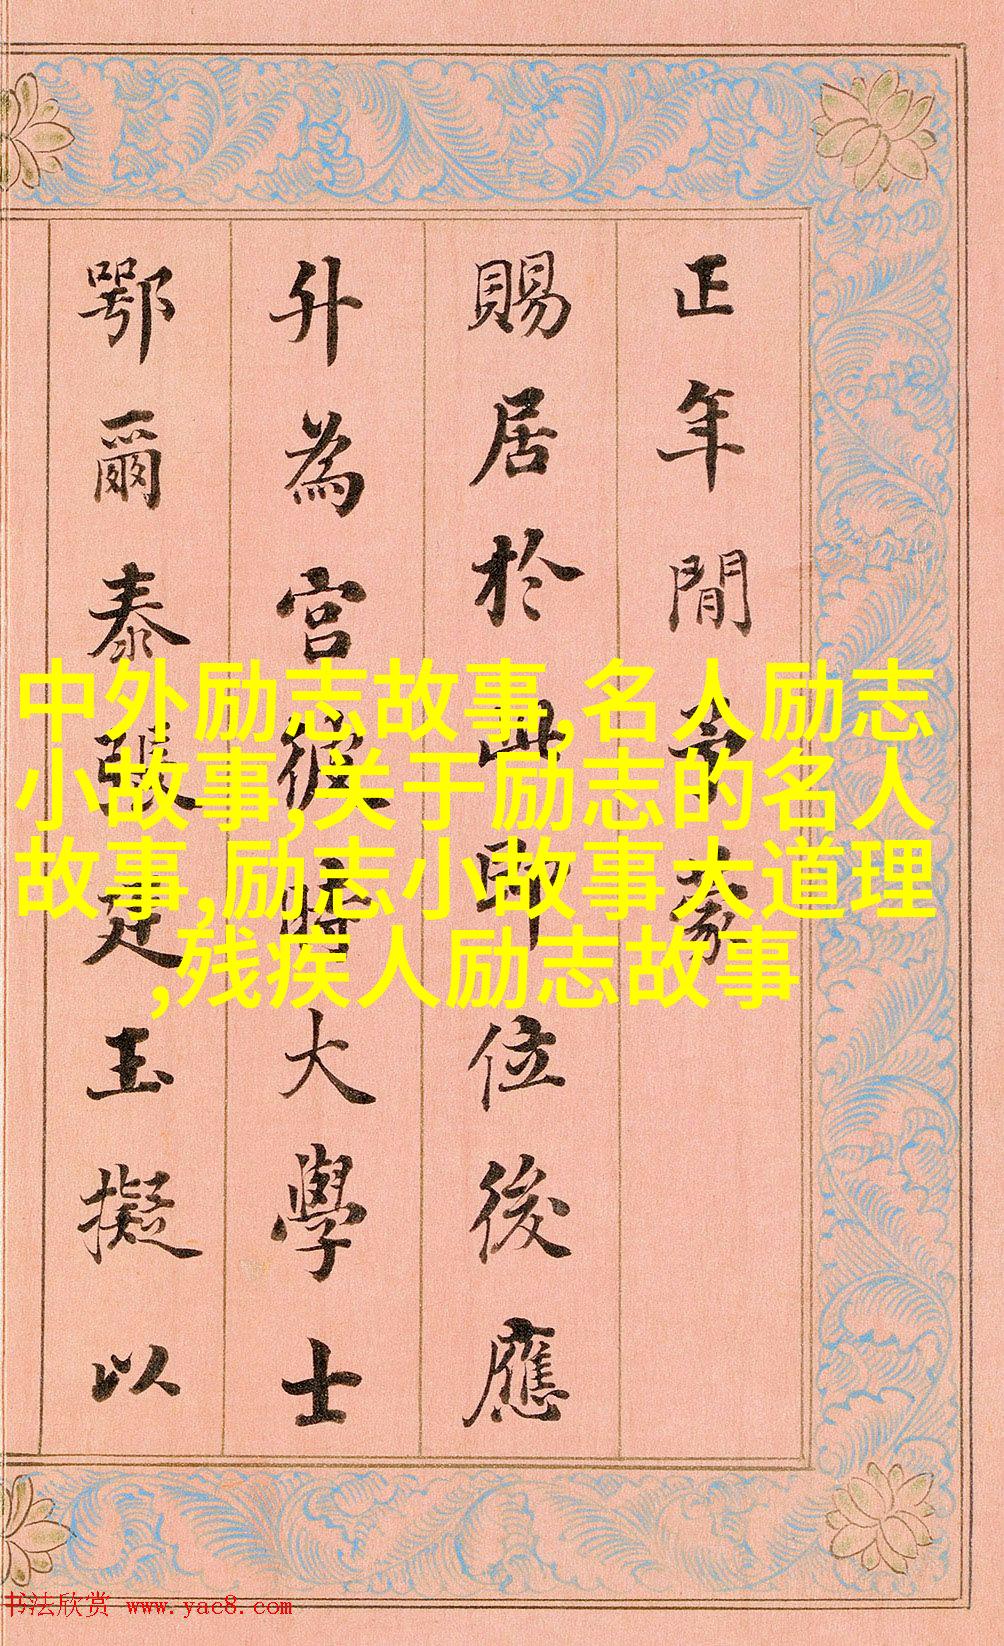 正年間蒙
賜居於此即位後應
升為宮彼時大學士
鄂爾泰張廷玉擬以
中外励志故事,名人励志
小故事,关于励志的名人
故事,励志小故事大道理
,残疾人励志故事
书法欣赏 www.yac8.com